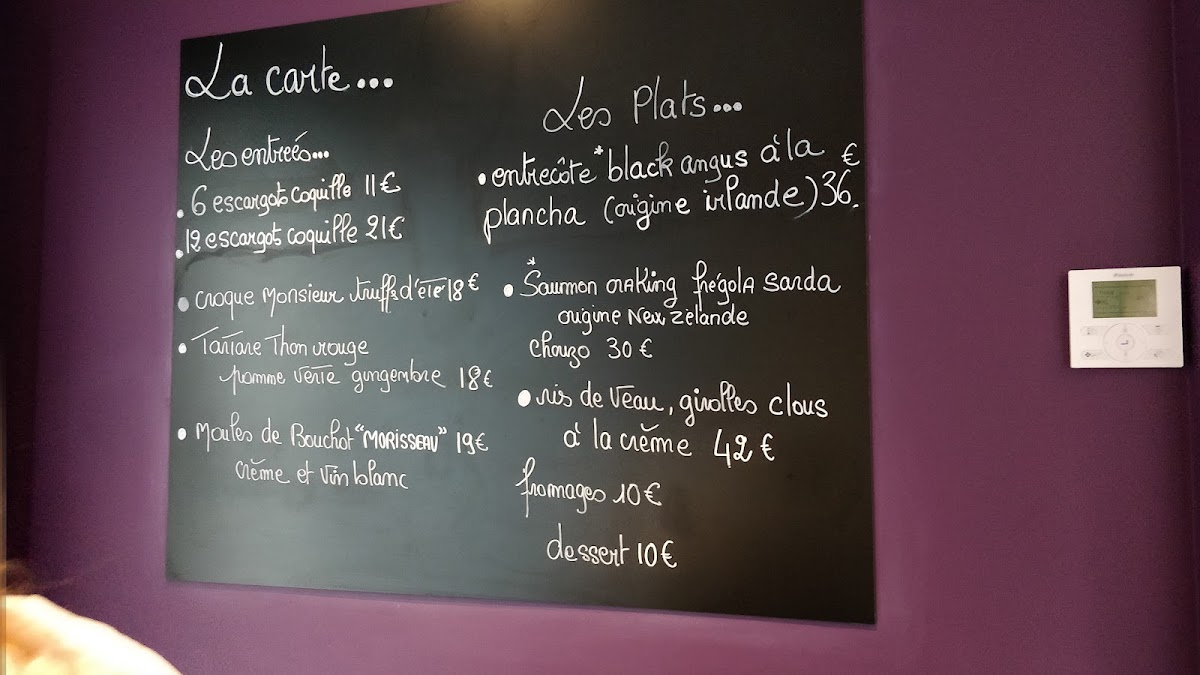 La carte...
Les entreés...
. 6 escargots coquille 11€
. 12 escargot coquille 21€
• croque Monsieur truffe d'été 18€
• Tartare Thon rouge
pomme verte gingembre 18€
• Moules de Bouchot "MORISSEAU" 19€
crème et vin blanc
Les Plats...
• entrecôte *black angus à la
plancha (origine irlande) 36€.
• *Saumon oraking frégola sarda
origine New Zélande
chorizo 30€
• ris de Veau, girolles clous
à la crème 42€
fromages 10€
dessert 10€